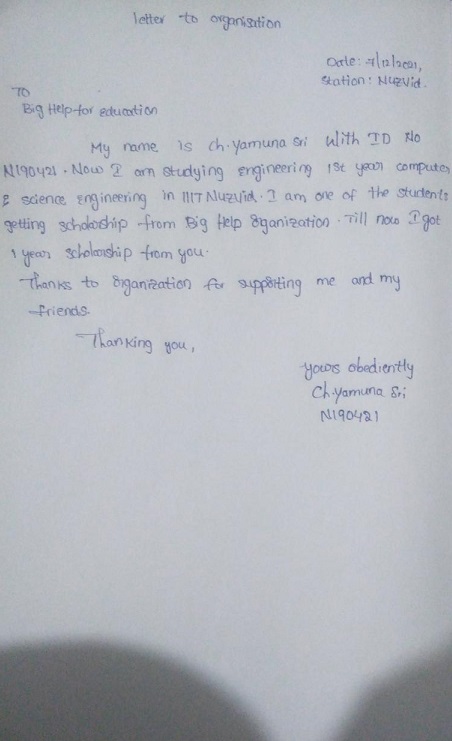 letter to organisation
Date: 7/12/2021,
Station: Nuzvid.
To
Big Help for education
My name is ch.yamuna sri with ID No
N190421. Now I am studying engineering 1st year computer
& science engineering in IIIT Nuzvid. I am one of the students
getting scholarship from Big Help Organization. Till now I got
1 year scholarship from you.
Thanks to organization for supporting me and my
friends.
Thanking you,
yours obediently
Ch.yamuna Sri
N190421